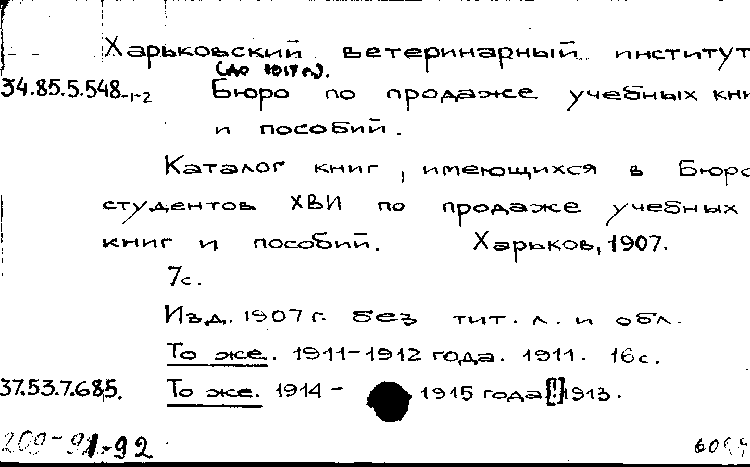 Харьковский ветеринарный институт
(до 1917 г.).
34.85.5.548-1-2 Бюро по продаже учебных кни
и пособий.
Каталог книг, имеющихся в Бюро
студентов ХВИ по продаже учебных
книг и пособий. Харьков, 1907.
7с.
Изд. 1907 г. без тит. л. и обл.
То же. 1911-1912 года. 1911. 16с.
37.53.7.685. То же. 1914 - 1915 года[!] 1913.
209-91-92